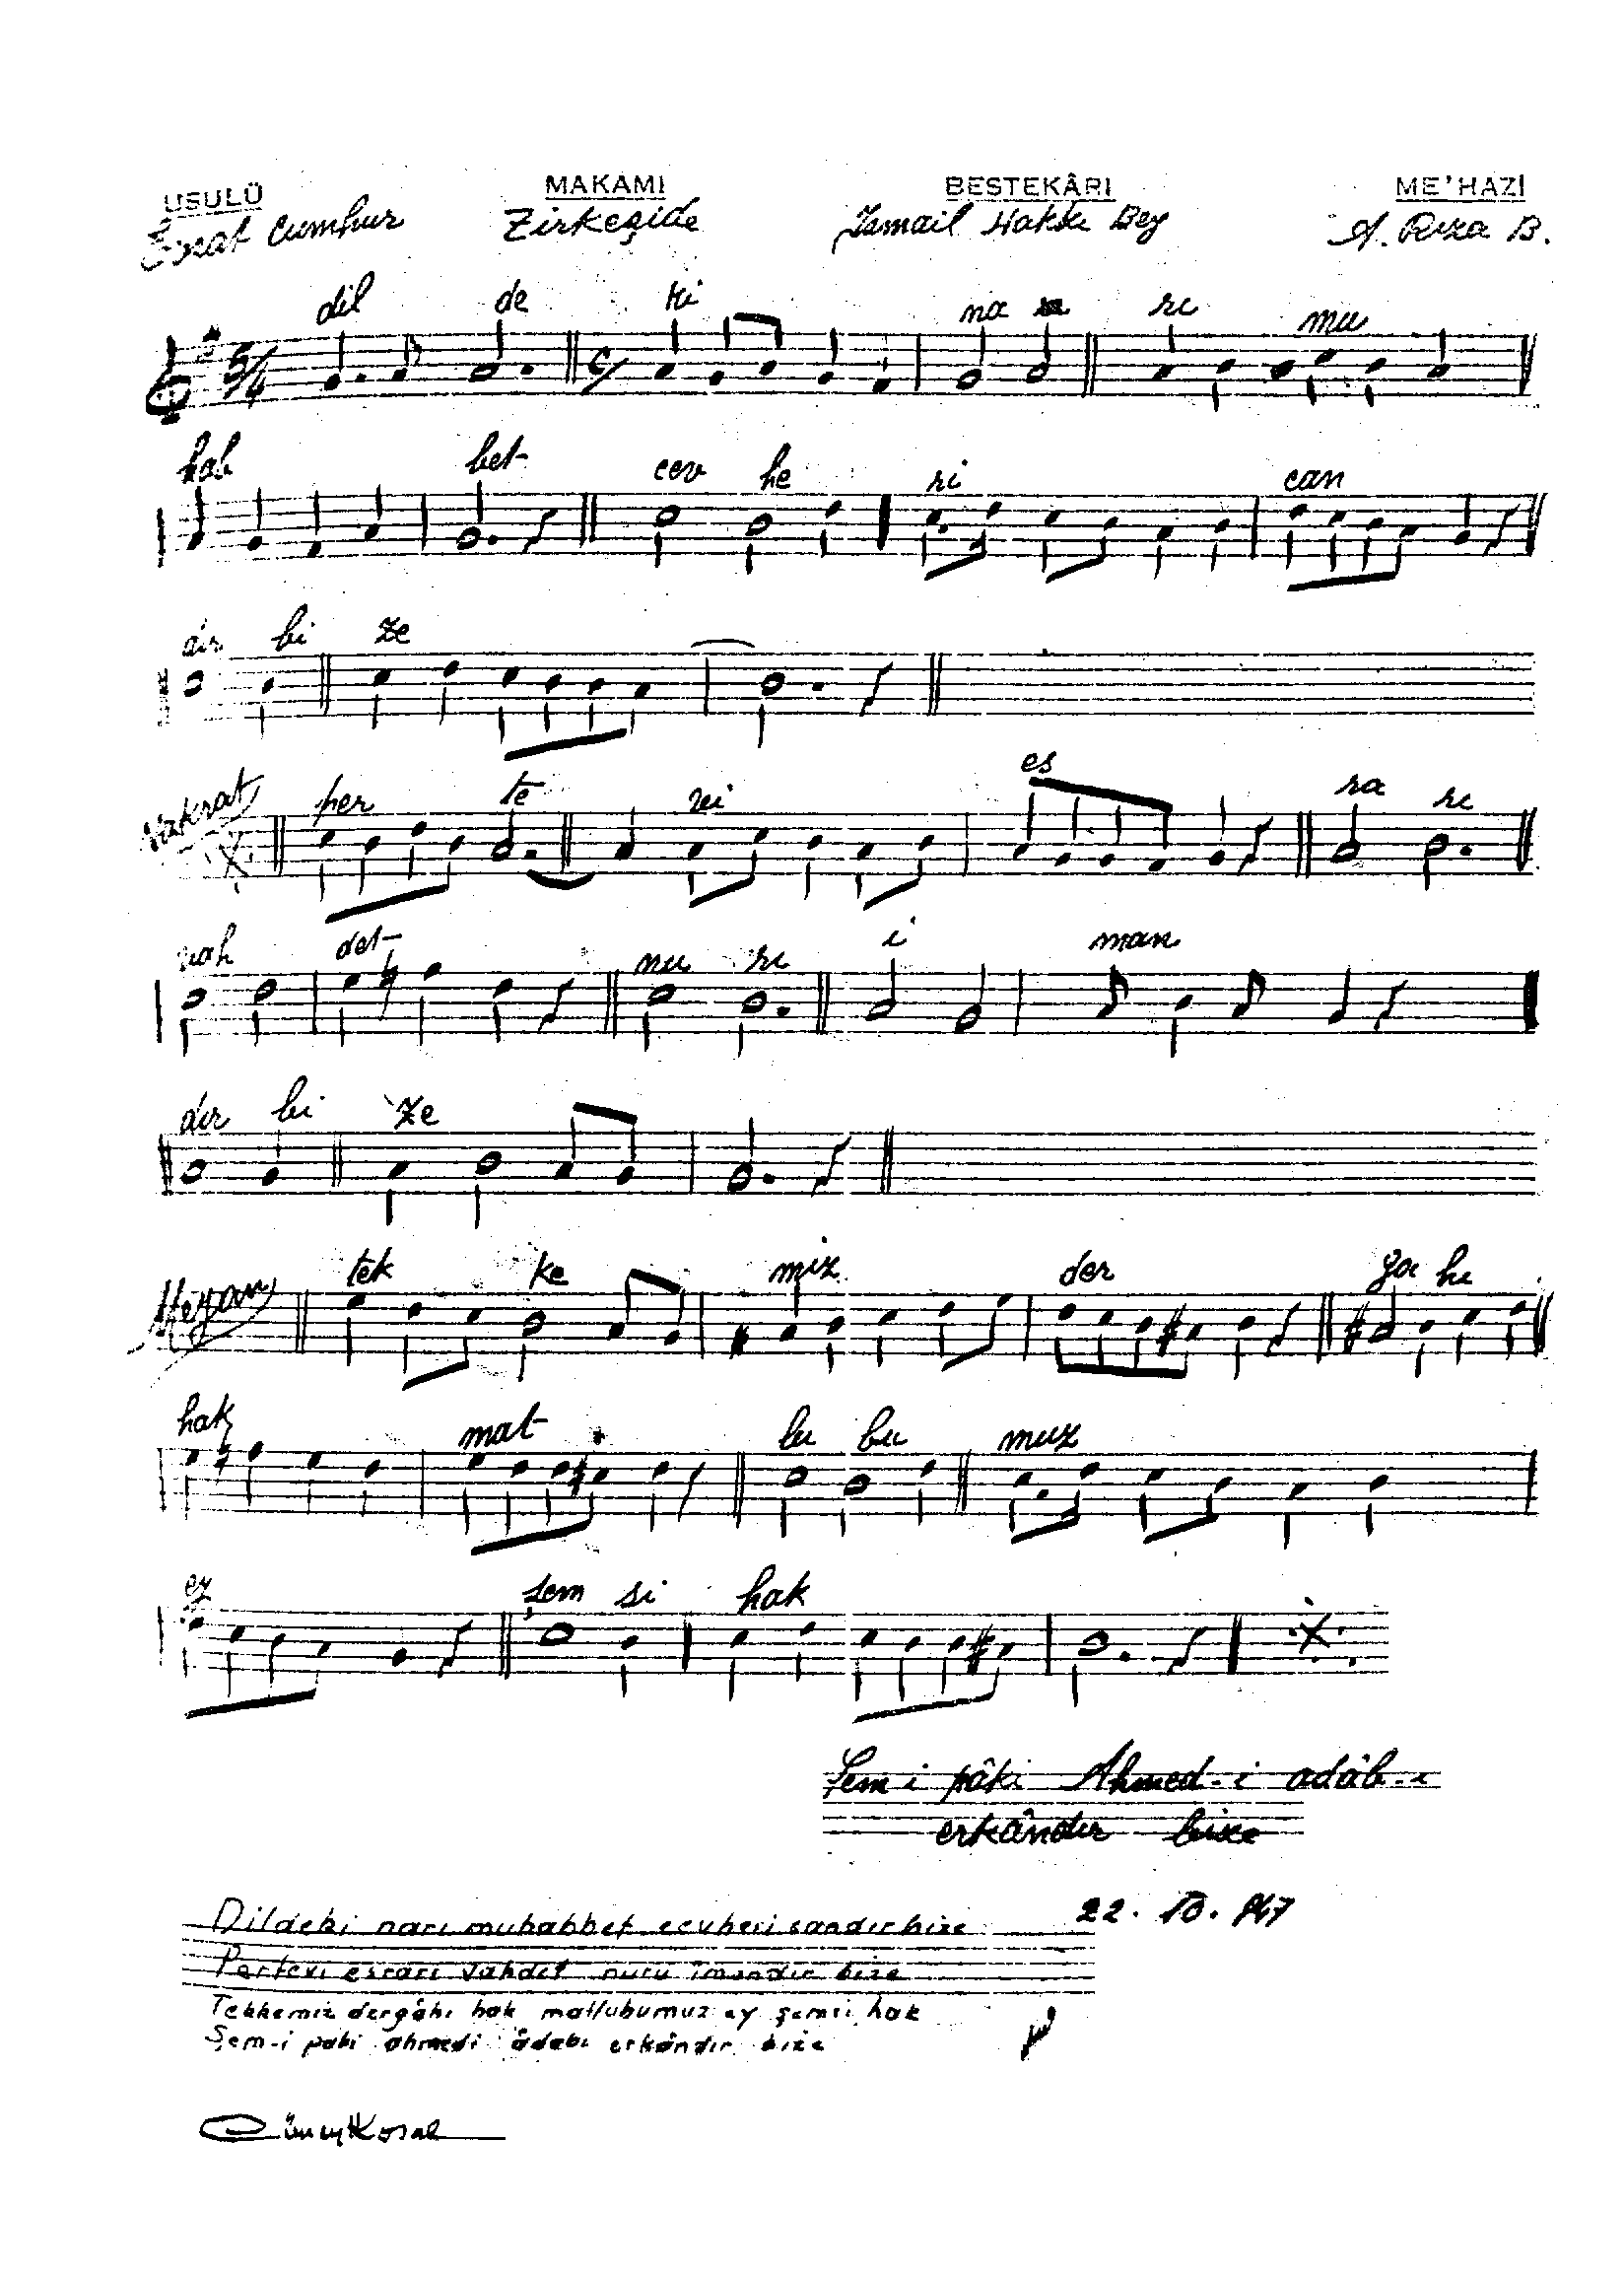 USULÜ MAKAMI BESTEKÂRI ME'HAZİ
Evsat Cumhur Zirkeşide İsmail Hakkı Bey A. Rıza B.
5/4
dil de ki na ri mu
hab bet cev he ri can
dır bi ze
Nakrat per te vi es ra rı
vah det nu ru i man
dır bi ze
Meyan tek ke miz der ga hı
hak mat lu bu muz
ey şem si hak
Şem i pâki Ahmed-i adâb-ı
erkândır bize
Dildeki narı muhabbet cevheri candır bize 22. 10. 947
Pertevi esrarı vahdet nuru imandır bize
Tekkemiz dergâhı hak matlubumuz ey şemsi hak
Şem-i paki ahmedi âdabı erkândır bize
CüneytKosal